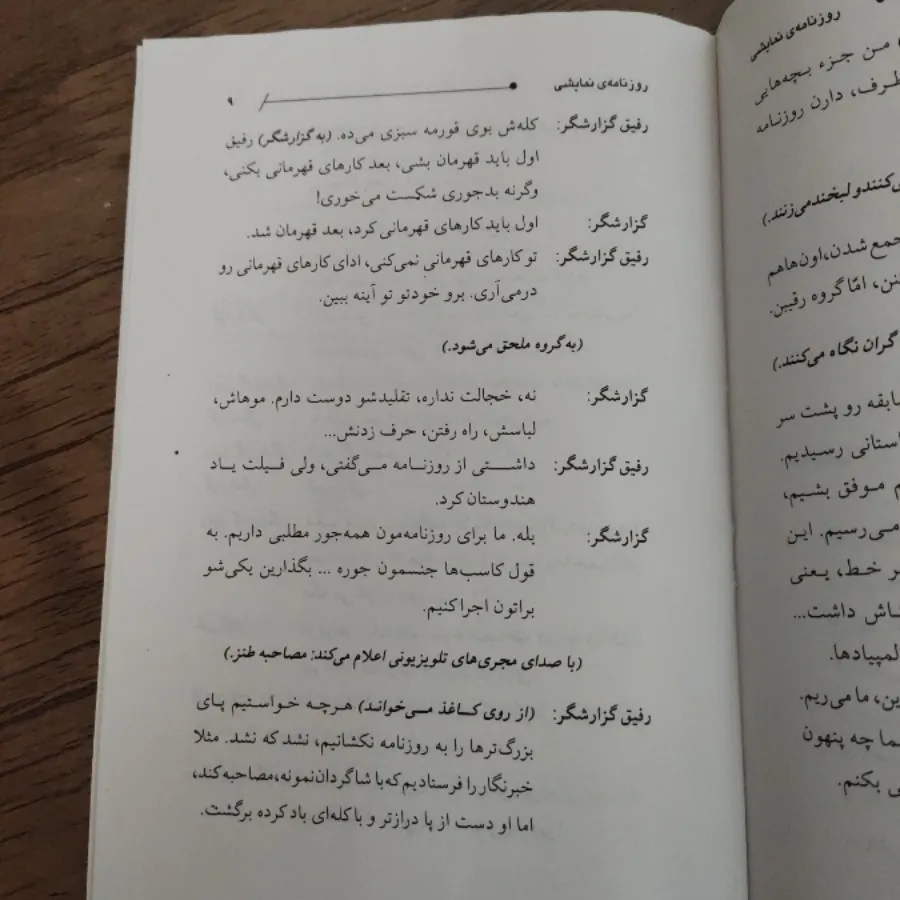 روزنامه‌ی نمایشی ۹
رفیق گزارشگر: کله‌ش بوی قورمه سبزی می‌ده. (به گزارشگر) رفیق
اول باید قهرمان بشی، بعد کارهای قهرمانی بکنی،
وگرنه بدجوری شکست می‌خوری!
گزارشگر: اول باید کارهای قهرمانی کرد، بعد قهرمان شد.
رفیق گزارشگر: تو کارهای قهرمانی نمی‌کنی، ادای کارهای قهرمانی رو
درمی‌آری. برو خودتو تو آینه ببین.
(به گروه ملحق می‌شود.)
گزارشگر: نه، خجالت نداره، تقلیدشو دوست دارم. موهاش،
لباسش، راه رفتن، حرف زدنش...
رفیق گزارشگر: داشتی از روزنامه می‌گفتی، ولی فیلت یاد
هندوستان کرد.
گزارشگر: بله. ما برای روزنامه‌مون همه‌جور مطلبی داریم. به
قول کاسب‌ها جنسمون جوره ... بگذارین یکی‌شو
براتون اجرا کنیم.
(با صدای مجری‌های تلویزیونی اعلام می‌کند: مصاحبه طنز.)
رفیق گزارشگر: (از روی کاغذ می‌خواند) هرچه خواستیم پای
بزرگ‌ترها را به روزنامه نکشانیم، نشد که نشد. مثلا
خبرنگار را فرستادیم که با شاگردان نمونه، مصاحبه کند،
اما او دست از پا درازتر و با کله‌ای باد کرده برگشت.
روزنامه‌ی نمایشی
من جزء بچه‌هایی
طرف، دارن روزنامه
می‌کنند و لبخند می‌زنند.)
جمع شدن، اون‌ها هم
امّا گروه رقیبن.
نگاه می‌کنند.)
رو پشت سر
رسیدیم.
موفق بشیم،
می‌رسیم. این
خط، یعنی
داشت...
ما می‌ریم.
چه پنهون
بکنم.